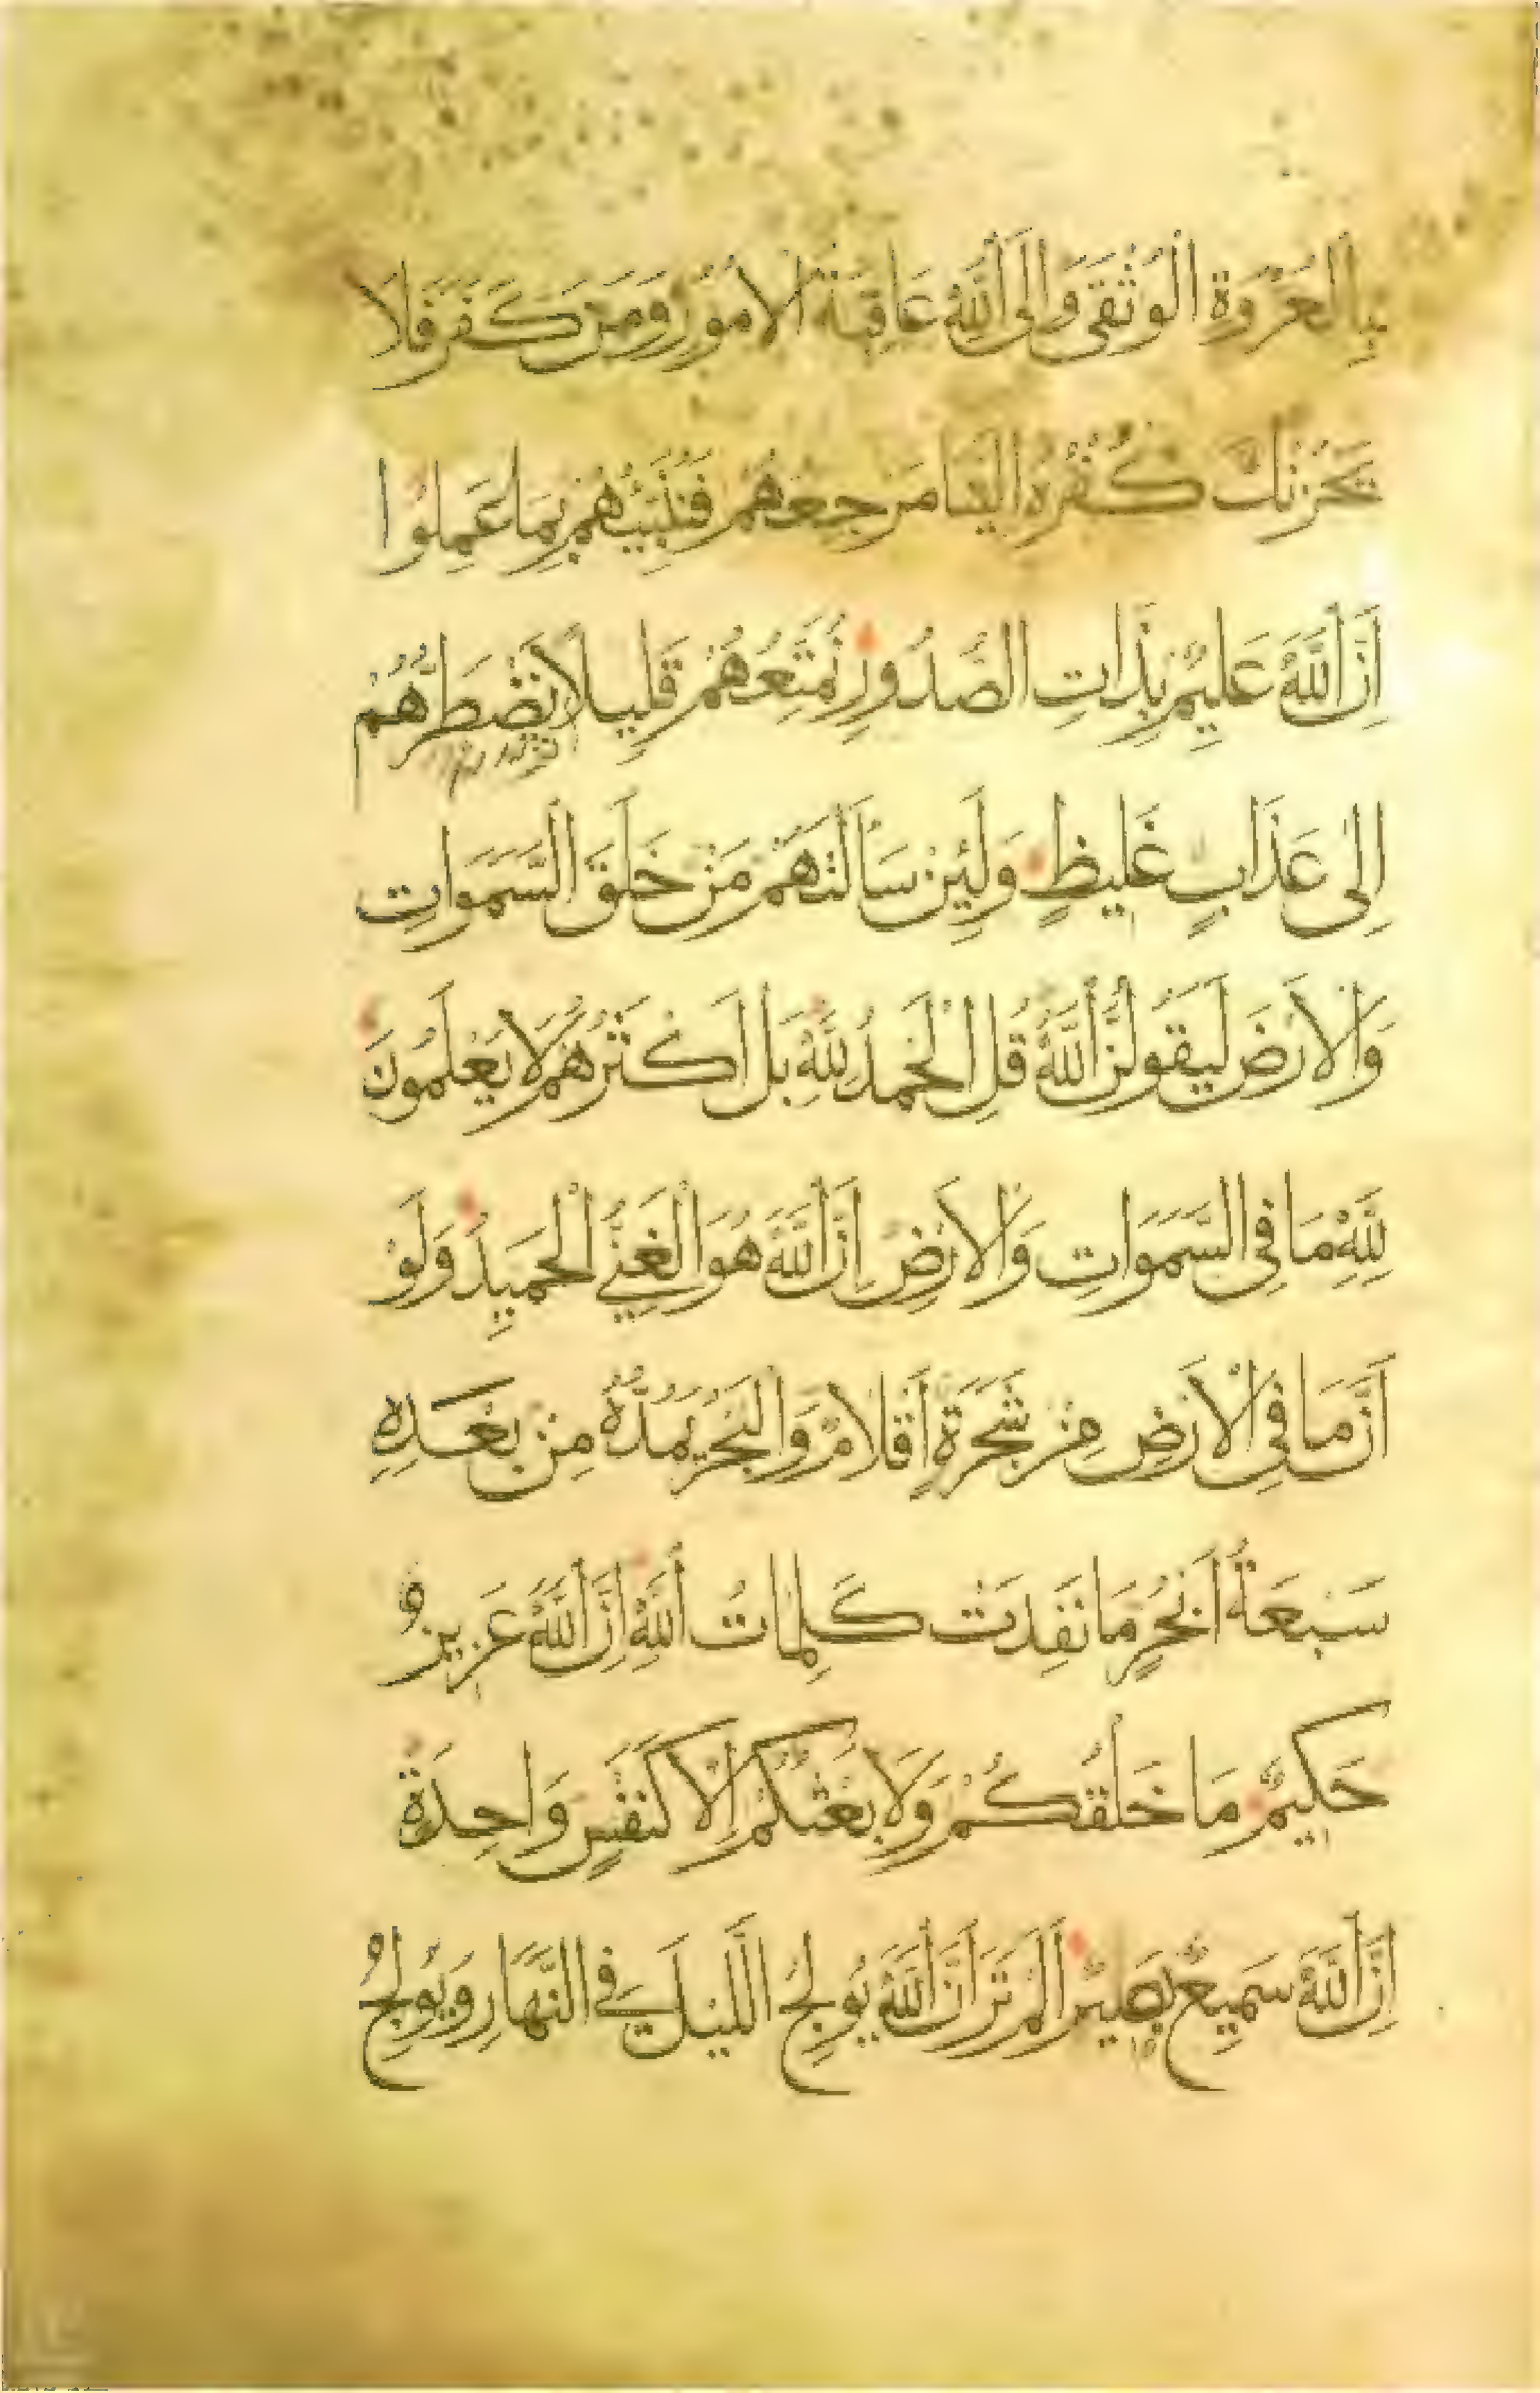 بِالْعُرْوَةِ الْوُثْقَى وَإِلَى اللَّهِ عَاقِبَةُ الْأُمُورِ وَمَنْ كَفَرَ فَلَا
يَحْزُنْكَ كُفْرُهُ إِلَيْنَا مَرْجِعُهُمْ فَنُنَبِّئُهُمْ بِمَا عَمِلُوا
إِنَّ اللَّهَ عَلِيمٌ بِذَاتِ الصُّدُورِ نُمَتِّعُهُمْ قَلِيلًا ثُمَّ نَضْطَرُّهُمْ
إِلَى عَذَابٍ غَلِيظٍ وَلَئِنْ سَأَلْتَهُمْ مَنْ خَلَقَ السَّمَوَاتِ
وَالْأَرْضَ لَيَقُولُنَّ اللَّهُ قُلِ الْحَمْدُ لِلَّهِ بَلْ أَكْثَرُهُمْ لَا يَعْلَمُونَ
لِلَّهِ مَا فِي السَّمَوَاتِ وَالْأَرْضِ إِنَّ اللَّهَ هُوَ الْغَنِيُّ الْحَمِيدُ وَلَوْ
أَنَّ مَا فِي الْأَرْضِ مِنْ شَجَرَةٍ أَقْلَامٌ وَالْبَحْرُ يَمُدُّهُ مِنْ بَعْدِهِ
سَبْعَةُ أَبْحُرٍ مَا نَفِدَتْ كَلِمَاتُ اللَّهِ إِنَّ اللَّهَ عَزِيزٌ
حَكِيمٌ مَا خَلْقُكُمْ وَلَا بَعْثُكُمْ إِلَّا كَنَفْسٍ وَاحِدَةٍ
إِنَّ اللَّهَ سَمِيعٌ بَصِيرٌ أَلَمْ تَرَ أَنَّ اللَّهَ يُولِجُ اللَّيْلَ فِي النَّهَارِ وَيُولِجُ